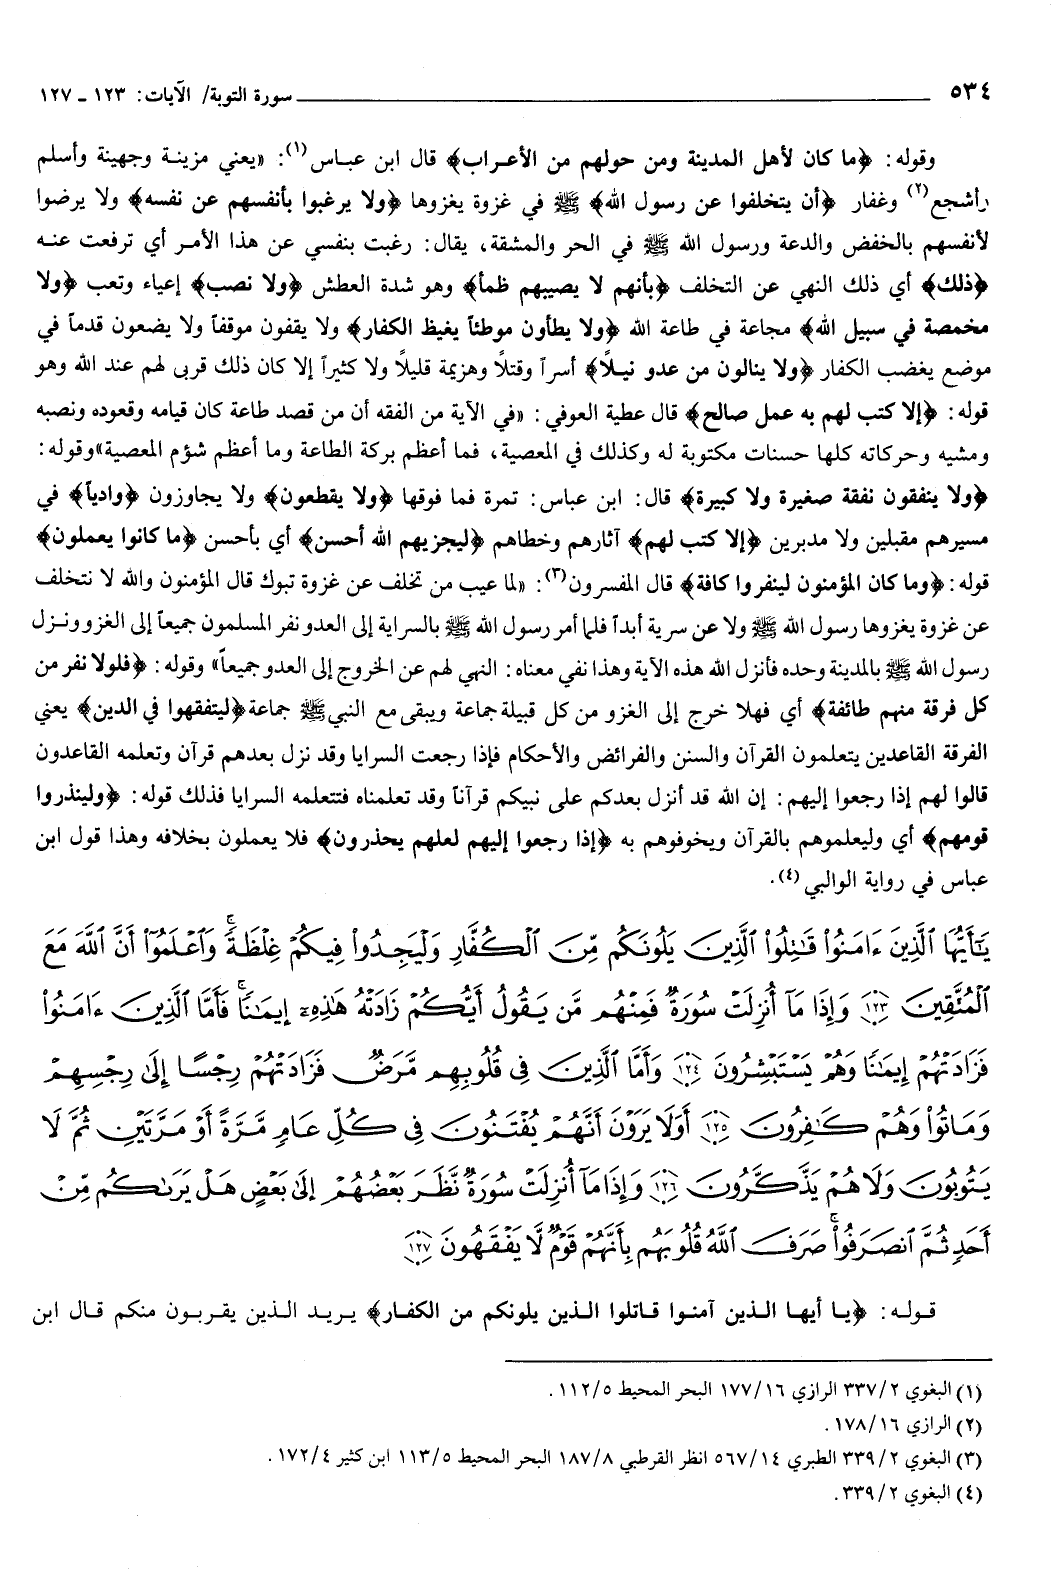 ٥٣٤ سورة التوبة/ الآيات: ١٢٣ ـ ١٢٧
وقوله: ﴿ما كان لأهل المدينة ومن حولهم من الأعراب﴾ قال ابن عباس(١): «يعني مزينة وجهينة وأسلم
رأشجع(٢) وغفار ﴿أن يتخلفوا عن رسول الله﴾ ﷺ في غزوة يغزوها ﴿ولا يرغبوا بأنفسهم عن نفسه﴾ ولا يرضوا
لأنفسهم بالخفض والدعة ورسول الله ﷺ في الحر والمشقة، يقال: رغبت بنفسي عن هذا الأمر أي ترفعت عنه
﴿ذلك﴾ أي ذلك النهي عن التخلف ﴿بأنهم لا يصيبهم ظمأ﴾ وهو شدة العطش ﴿ولا نصب﴾ إعياء وتعب ﴿ولا
مخمصة في سبيل الله﴾ مجاعة في طاعة الله ﴿ولا يطأون موطئاً يغيظ الكفار﴾ ولا يقفون موقفاً ولا يضعون قدماً في
موضع يغضب الكفار ﴿ولا ينالون من عدو نيلاً﴾ أسراً وقتلاً وهزيمة قليلاً ولا كثيراً إلا كان ذلك قربى لهم عند الله وهو
قوله: ﴿إلا كتب لهم به عمل صالح﴾ قال عطية العوفي: «في الآية من الفقه أن من قصد طاعة كان قيامه وقعوده ونصبه
ومشيه وحركاته كلها حسنات مكتوبة له وكذلك في المعصية، فما أعظم بركة الطاعة وما أعظم شؤم المعصية» وقوله:
﴿ولا ينفقون نفقة صغيرة ولا كبيرة﴾ قال: ابن عباس: تمرة فما فوقها ﴿ولا يقطعون﴾ ولا يجاوزون ﴿وادياً﴾ في
مسيرهم مقبلين ولا مدبرين ﴿إلا كتب لهم﴾ آثارهم وخطاهم ﴿ليجزيهم الله أحسن﴾ أي بأحسن ﴿ما كانوا يعملون﴾
قوله: ﴿وما كان المؤمنون لينفروا كافة﴾ قال المفسرون(٣): «لما عيب من تخلف عن غزوة تبوك قال المؤمنون والله لا نتخلف
عن غزوة يغزوها رسول الله ﷺ ولا عن سرية أبداً فلما أمر رسول الله ﷺ بالسراية إلى العدو نفر المسلمون جميعاً إلى الغزو ونزل
رسول الله ﷺ بالمدينة وحده فأنزل الله هذه الآية وهذا نفي معناه: النهي لهم عن الخروج إلى العدو جميعاً» وقوله: ﴿فلولا نفر من
كل فرقة منهم طائفة﴾ أي فهلا خرج إلى الغزو من كل قبيلة جماعة ويبقى مع النبي ﷺ جماعة ﴿ليتفقهوا في الدين﴾ يعني
الفرقة القاعدين يتعلمون القرآن والسنن والفرائض والأحكام فإذا رجعت السرايا وقد نزل بعدهم قرآن وتعلمه القاعدون
قالوا لهم إذا رجعوا إليهم: إن الله قد أنزل بعدكم على نبيكم قرآناً وقد تعلمناه فتتعلمه السرايا فذلك قوله: ﴿ولينذروا
قومهم﴾ أي وليعلموهم بالقرآن ويخوفوهم به ﴿إذا رجعوا إليهم لعلهم يحذرون﴾ فلا يعملون بخلافه وهذا قول ابن
عباس في رواية الوالبي(٤).
يَٰٓأَيُّهَا ٱلَّذِينَ ءَامَنُوا۟ قَٰتِلُوا۟ ٱلَّذِينَ يَلُونَكُم مِّنَ ٱلْكُفَّارِ وَلْيَجِدُوا۟ فِيكُمْ غِلْظَةً ۚ وَٱعْلَمُوٓا۟ أَنَّ ٱللَّهَ مَعَ
ٱلْمُتَّقِينَ ١٢٣ وَإِذَا مَآ أُنزِلَتْ سُورَةٌ فَمِنْهُم مَّن يَقُولُ أَيُّكُمْ زَادَتْهُ هَٰذِهِۦٓ إِيمَٰنًا ۚ فَأَمَّا ٱلَّذِينَ ءَامَنُوا۟
فَزَادَتْهُمْ إِيمَٰنًا وَهُمْ يَسْتَبْشِرُونَ ١٢٤ وَأَمَّا ٱلَّذِينَ فِى قُلُوبِهِم مَّرَضٌ فَزَادَتْهُمْ رِجْسًا إِلَىٰ رِجْسِهِمْ
وَمَاتُوا۟ وَهُمْ كَٰفِرُونَ ١٢٥ أَوَلَا يَرَوْنَ أَنَّهُمْ يُفْتَنُونَ فِى كُلِّ عَامٍ مَّرَّةً أَوْ مَرَّتَيْنِ ثُمَّ لَا
يَتُوبُونَ وَلَا هُمْ يَذَّكَّرُونَ ١٢٦ وَإِذَا مَآ أُنزِلَتْ سُورَةٌ نَّظَرَ بَعْضُهُمْ إِلَىٰ بَعْضٍ هَلْ يَرَىٰكُم مِّنْ
أَحَدٍ ثُمَّ ٱنصَرَفُوا۟ ۚ صَرَفَ ٱللَّهُ قُلُوبَهُم بِأَنَّهُمْ قَوْمٌ لَّا يَفْقَهُونَ ١٢٧
قوله: ﴿يا أيها الذين آمنوا قاتلوا الذين يلونكم من الكفار﴾ يريد الذين يقربون منكم قال ابن
(١) البغوي ٢/ ٣٣٧ الرازي ١٦/ ١٧٧ البحر المحيط ٥/ ١١٢.
(٢) الرازي ١٦/ ١٧٨.
(٣) البغوي ٢/ ٣٣٩ الطبري ١٤/ ٥٦٧ انظر القرطبي ٨/ ١٨٧ البحر المحيط ٥/ ١١٣ ابن كثير ٤/ ١٧٢.
(٤) البغوي ٢/ ٣٣٩.